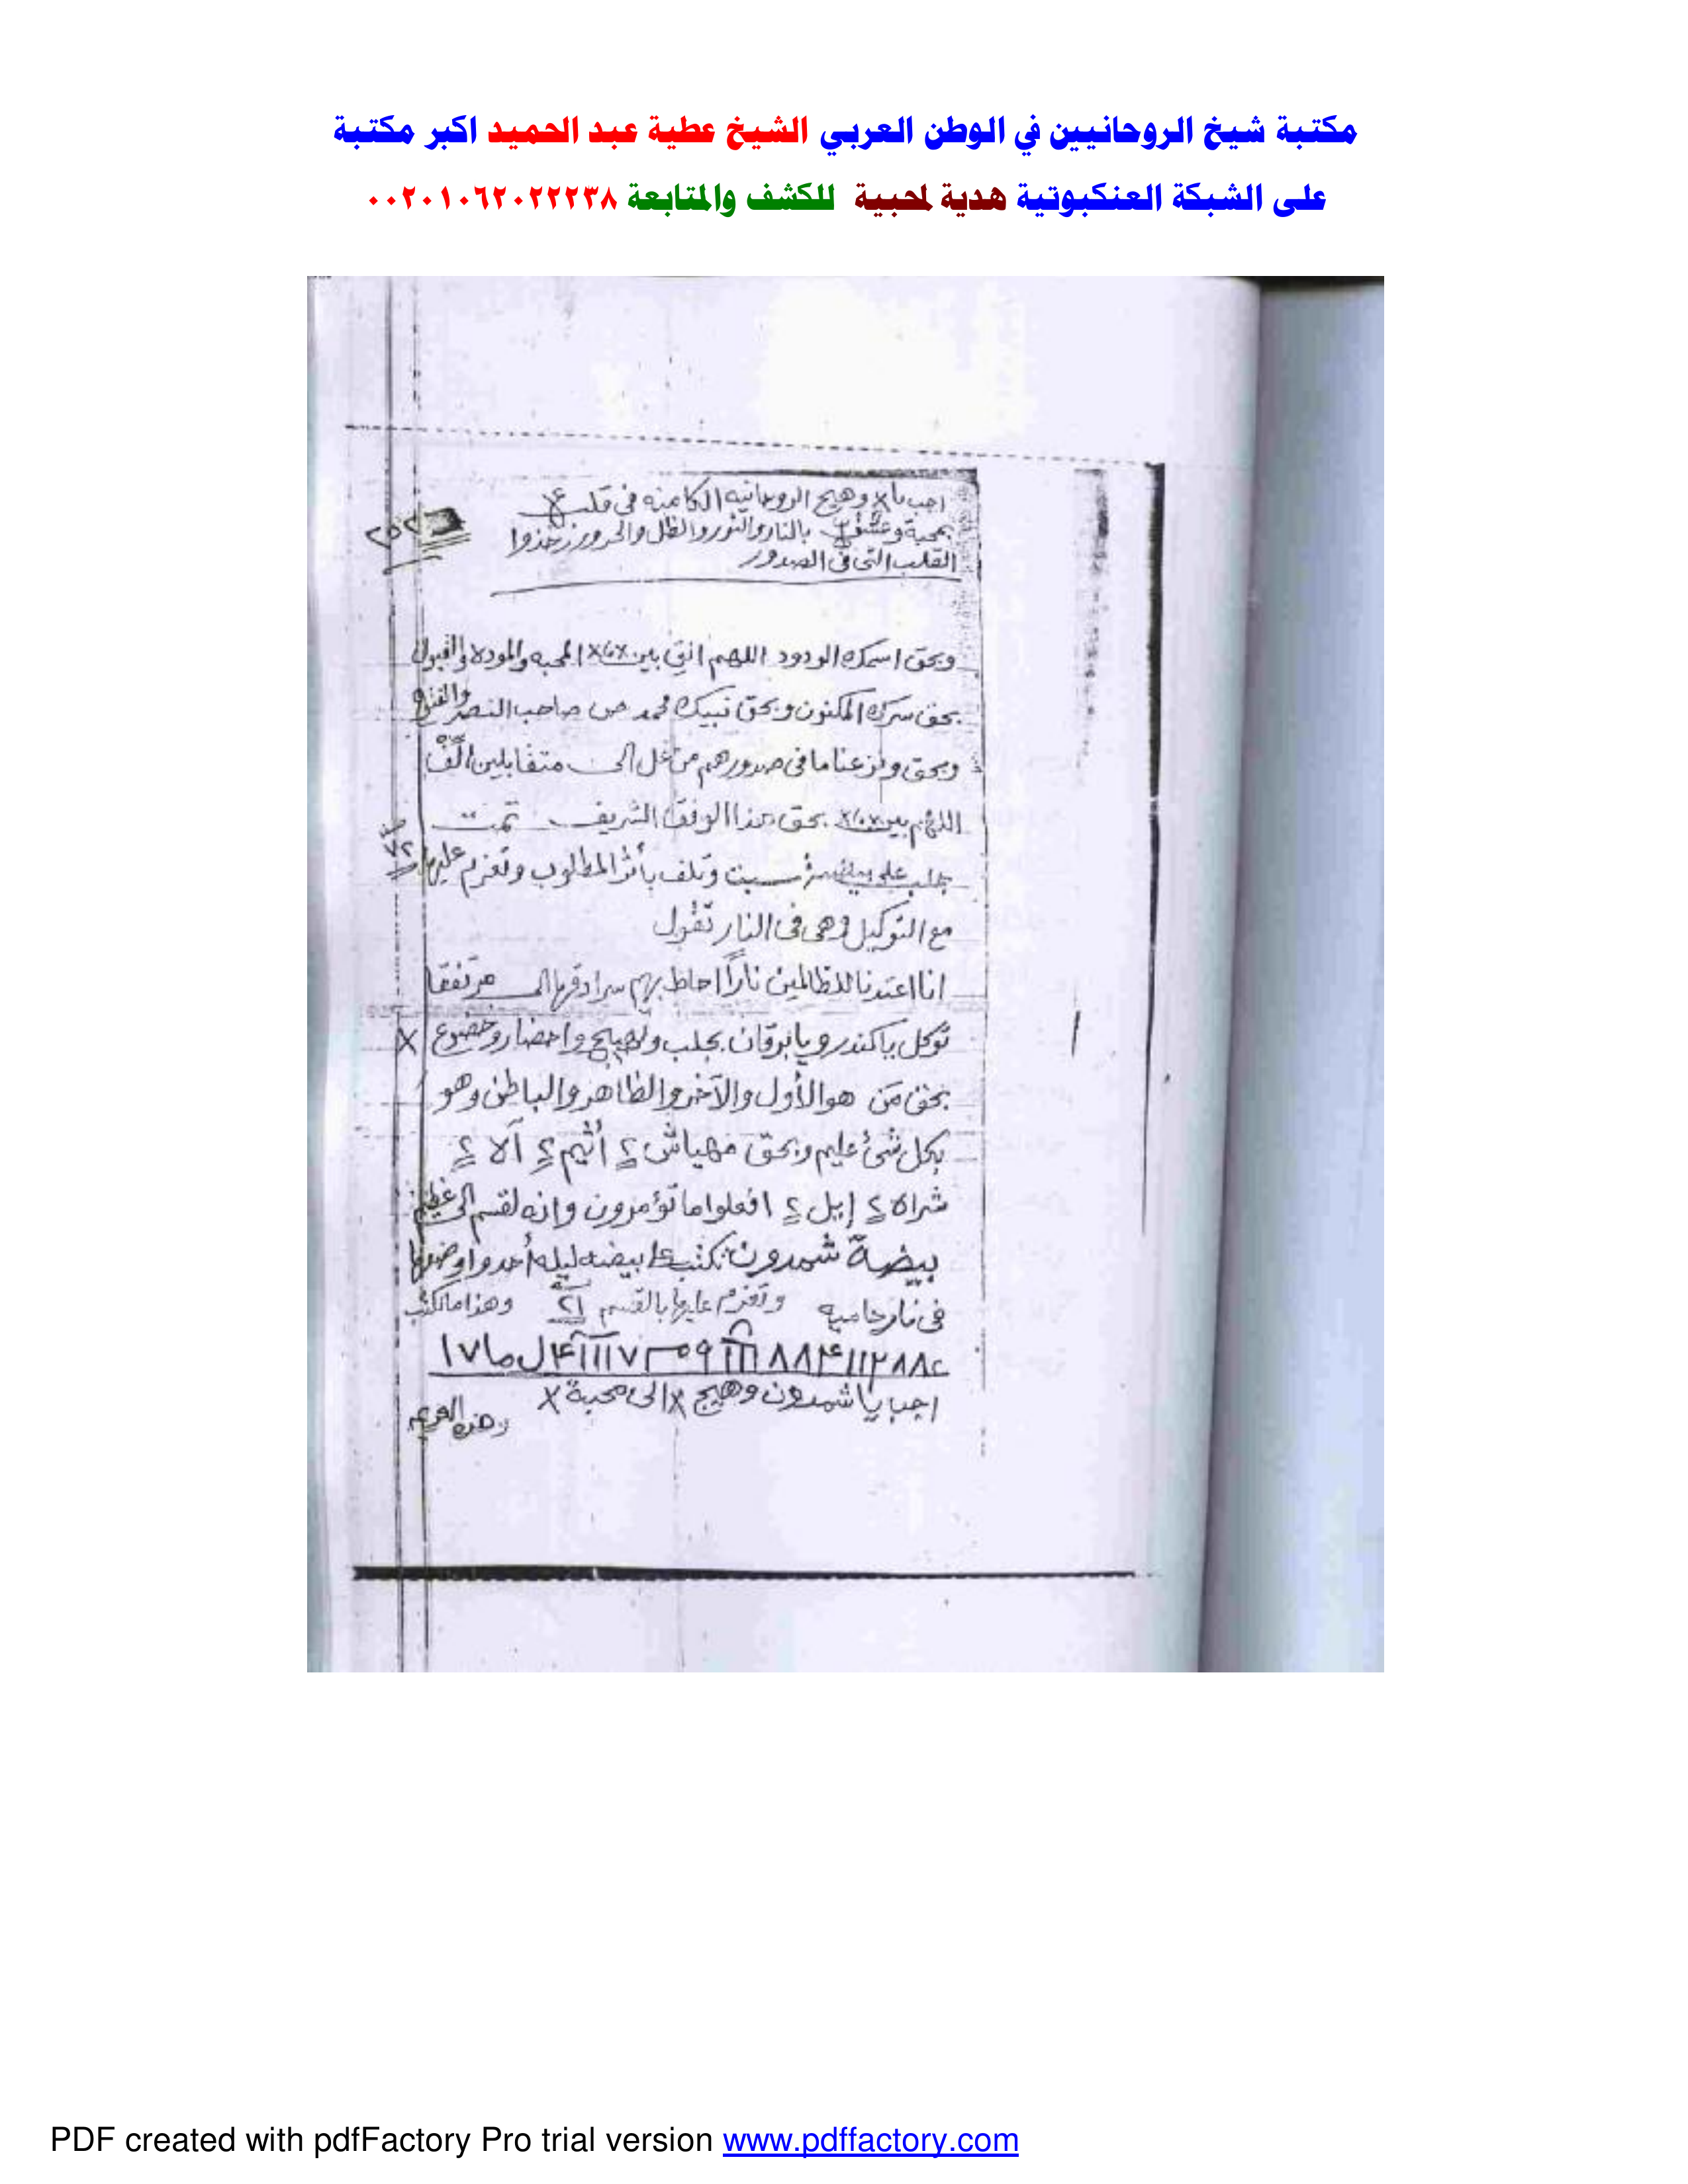 مكتبة شيخ الروحانيين في الوطن العربي الشيخ عطية عبد الحميد اكبر مكتبة
على الشبكة العنكبوتية هدية لمحبية للكشف والمتابعة ٠٠٢٠١٠٦٢٠٢٢٢٣٨
اجب يا x وهيج الروحانيه الكامنه فى قلب
بمحبة وعشق بالنار والنور والظل والحرور خذوا
القلب التى فى الصدور
وبحق اسمك الودود اللهم بين المحبه والموده والقبول
بحق سرك المكنون وبحق نبيك محمد ص صاحب النصر
وبحق ونزعنا ما فى صدورهم من غل الى متقابلين
اللهم بين بحق هذا الوفق الشريف تمت
جلب على سبت وتلف بأثر المطلوب وتعزم عليها ٧٢
مع التوكيل وهى فى النار تقول
انا اعتدنا للظالمين ناراً احاط بهم سرادقها الى مرتفقا
توكل يا كندر ويا برقان بجلب وتهييج واحضار وخضوع x
بحق مَن هو الأول والآخر والظاهر والباطن وهو
بكل شئ عليم وبحق مهياش ٢ أثيم ٢ آلا ٢
شراه ٢ إيل ٢ افعلوا ما تؤمرون وانه لقسم الى
بيضة شمدون تكتب على بيضه ليله أحد
فى نار حاميه وتعزم عليها بالقسم ٢١ وهذا ما تكتب
اجب يا شمدون وهيج x الى محبة x
وهذه
PDF created with pdfFactory Pro trial version www.pdffactory.com